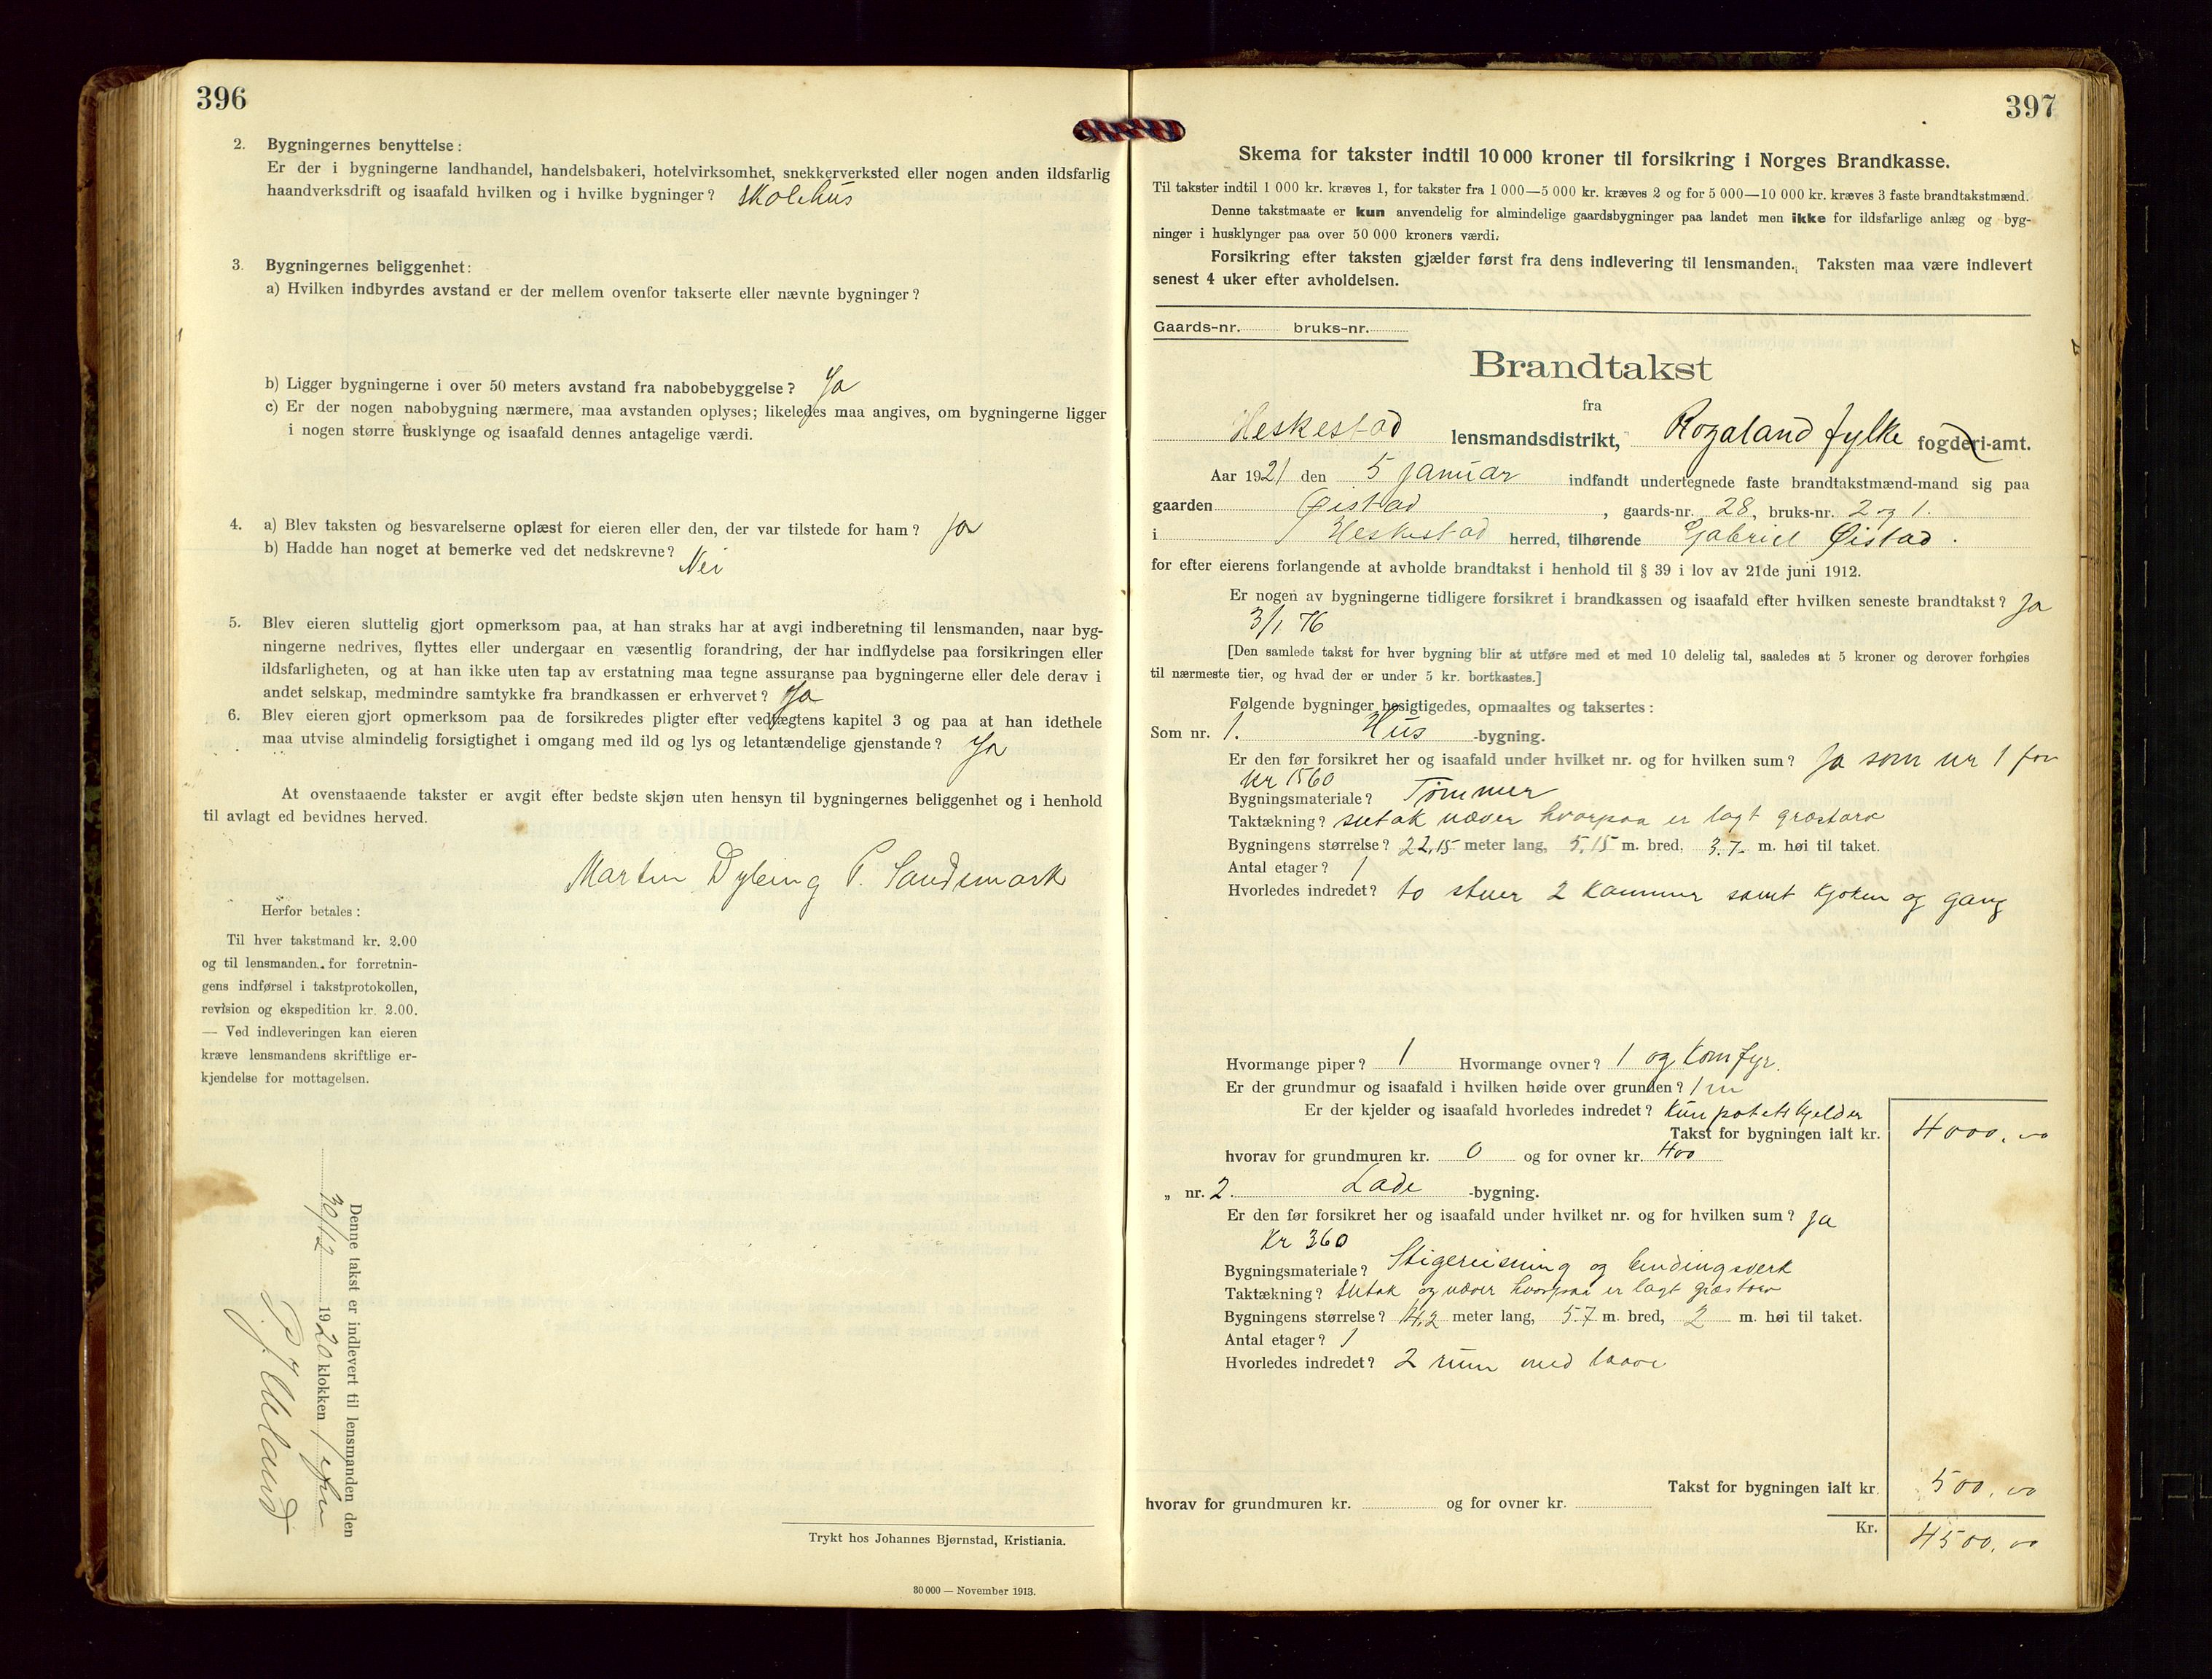 396
2. Bygningernes benyttelse:
Er der i bygningerne landhandel, handelsbakeri, hotelvirksomhet, snekkerverksted eller nogen anden ildsfarlig
haandverksdrift og isaafald hvilken og i hvilke bygninger? Skolehus
3. Bygningernes beliggenhet:
a) Hvilken indbyrdes avstand er der mellem ovenfor takserte eller nævnte bygninger?
b) Ligger bygningerne i over 50 meters avstand fra nabobebyggelse? Ja
c) Er der nogen nabobygning nærmere, maa avstanden oplyses; likeledes maa angives, om bygningerne ligger
i nogen større husklynge og isaafald dennes antagelige værdi.
4. a) Blev taksten og besvarelserne oplæst for eieren eller den, der var tilstede for ham? Ja
b) Hadde han noget at bemerke ved det nedskrevne? Nei
5. Blev eieren sluttelig gjort opmerksom paa, at han straks har at avgi indberetning til lensmanden, naar byg-
ningerne nedrives, flyttes eller undergaar en væsentlig forandring, der har indflydelse paa forsikringen eller
ildsfarligheten, og at han ikke uten tap av erstatning maa tegne assuranse paa bygningerne eller dele derav i
andet selskap, medmindre samtykke fra brandkassen er erhvervet? Ja
6. Blev eieren gjort opmerksom paa de forsikredes pligter efter vedtægtens kapitel 3 og paa at han idethele
maa utvise almindelig forsigtighet i omgang med ild og lys og letantændelige gjenstande? Ja
At ovenstaaende takster er avgit efter bedste skjøn uten hensyn til bygningernes beliggenhet og i henhold
til avlagt ed bevidnes herved.
Martin Dybing P. Sandsmark
Herfor betales:
Til hver takstmand kr. 2.00
og til lensmanden for forretnin-
gens indførsel i takstprotokollen,
revision og ekspedition kr. 2.00.
— Ved indleveringen kan eieren
kræve lensmandens skriftlige er-
kjendelse for mottagelsen.
Denne takst er indlevert til lensmanden den
30/12 1920 klokken
Trykt hos Johannes Bjørnstad, Kristiania.
30 000 — November 1913.
397
Skema for takster indtil 10 000 kroner til forsikring i Norges Brandkasse.
Til takster indtil 1 000 kr. kræves 1, for takster fra 1 000—5 000 kr. kræves 2 og for 5 000—10 000 kr. kræves 3 faste brandtakstmænd.
Denne takstmaate er kun anvendelig for almindelige gaardsbygninger paa landet men ikke for ildsfarlige anlæg og byg-
ninger i husklynger paa over 50 000 kroners værdi.
Forsikring efter taksten gjælder først fra dens indlevering til lensmanden. Taksten maa være indlevert
senest 4 uker efter avholdelsen.
Gaards-nr. bruks-nr.
Brandtakst
fra
Heskestad lensmandsdistrikt, Rogaland fylke fogderi-amt.
Aar 1921 den 5 Januar indfandt undertegnede faste brandtakstmænd-mand sig paa
gaarden Øistad, gaards-nr. 28, bruks-nr. 2 og 1.
i Heskestad herred, tilhørende Gabriel Øistad.
for efter eierens forlangende at avholde brandtakst i henhold til § 39 i lov av 21de juni 1912.
Er nogen av bygningerne tidligere forsikret i brandkassen og isaafald efter hvilken seneste brandtakst? Ja
3/1 76
[Den samlede takst for hver bygning blir at utføre med et med 10 delelig tal, saaledes at 5 kroner og derover forhøies
til nærmeste tier, og hvad der er under 5 kr. bortkastes.]
Følgende bygninger besigtigedes, opmaaltes og taksertes:
Som nr. 1. Hus -bygning.
Er den før forsikret her og isaafald under hvilket nr. og for hvilken sum? Ja som nr 1 for
Kr 1560
Bygningsmateriale? Tømmer
Taktækning? sutak næver hvorpaa er lagt græstorv
Bygningens størrelse? 22,15 meter lang, 5,15 m. bred, 3.7 m. høi til taket.
Antal etager? 1
Hvorledes indredet? to stuer 2 kammer samt kjøken og gang
Hvormange piper? 1 Hvormange ovner? 1 og Komfyr.
Er der grundmur og isaafald i hvilken høide over grunden? 1 m
Er der kjelder og isaafald hvorledes indredet? Kun potetkjelder
Takst for bygningen ialt kr. 4000,00
hvorav for grundmuren kr. 0 og for ovner kr. 400
„ nr. 2. Lade -bygning.
Er den før forsikret her og isaafald under hvilket nr. og for hvilken sum? Ja
Kr 360
Bygningsmateriale? Stigereisning og bindingsverk
Taktækning? sutak og næver hvorpaa er lagt græstorv
Bygningens størrelse? 14,2 meter lang, 5.7 m. bred, 2 m. høi til taket.
Antal etager? 1
Hvorledes indredet? 2 rum med laave
Takst for bygningen ialt kr. 500,00
hvorav for grundmuren kr. og for ovner kr.
Kr. 4500,00